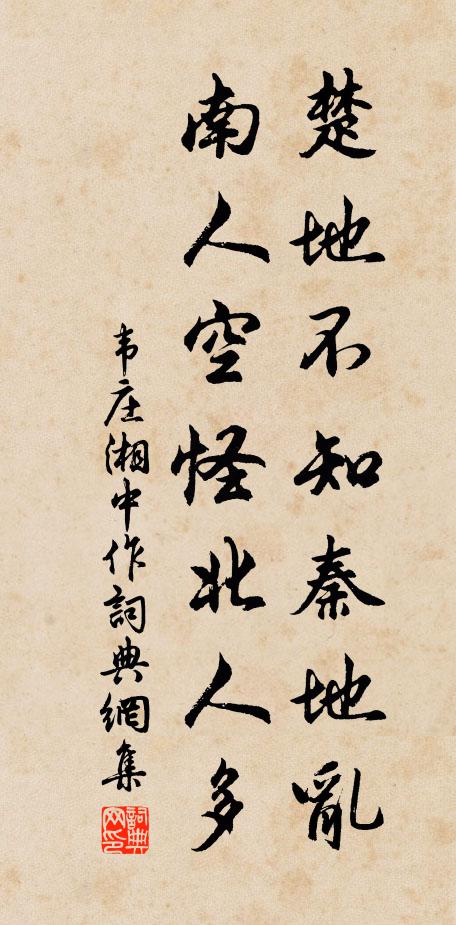 楚地不知秦地亂
南人空怪北人多
韦庄湘中作詞典網集
詞典网印